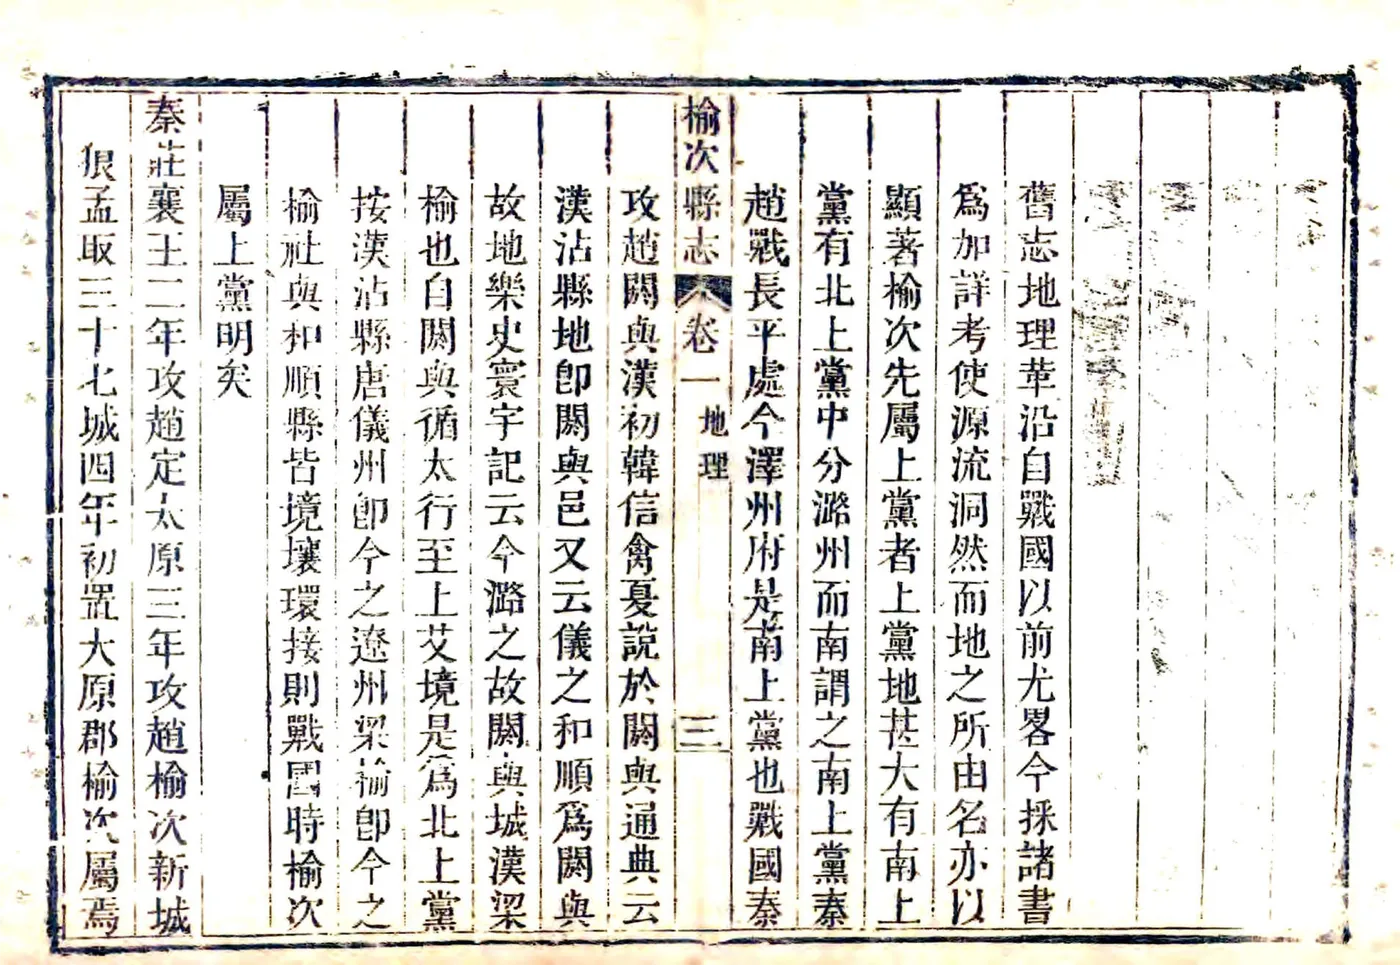 舊志地理革沿自戰國以前尤畧今採諸書
爲加詳考使源流洞然而地之所由名亦以
顯著榆次先屬上黨者上黨地甚大有南上
黨有北上黨中分潞州而南謂之南上黨秦
趙戰長平處今澤州府是南上黨也戰國秦
榆次縣志 卷一 地理 三
攻趙閼與漢初韓信禽夏說於閼與通典云
漢沾縣地卽閼與邑又云儀之和順爲閼與
故地樂史寰宇記云今潞之故閼與城漢梁
榆也自閼與循太行至上艾境是爲北上黨
按漢沾縣唐儀州卽今之遼州梁榆卽今之
榆社與和順縣皆境壤環接則戰國時榆次
屬上黨明矣
秦莊襄王二年攻趙定太原三年攻趙榆次新城
狼孟取三十七城四年初置太原郡榆次屬焉